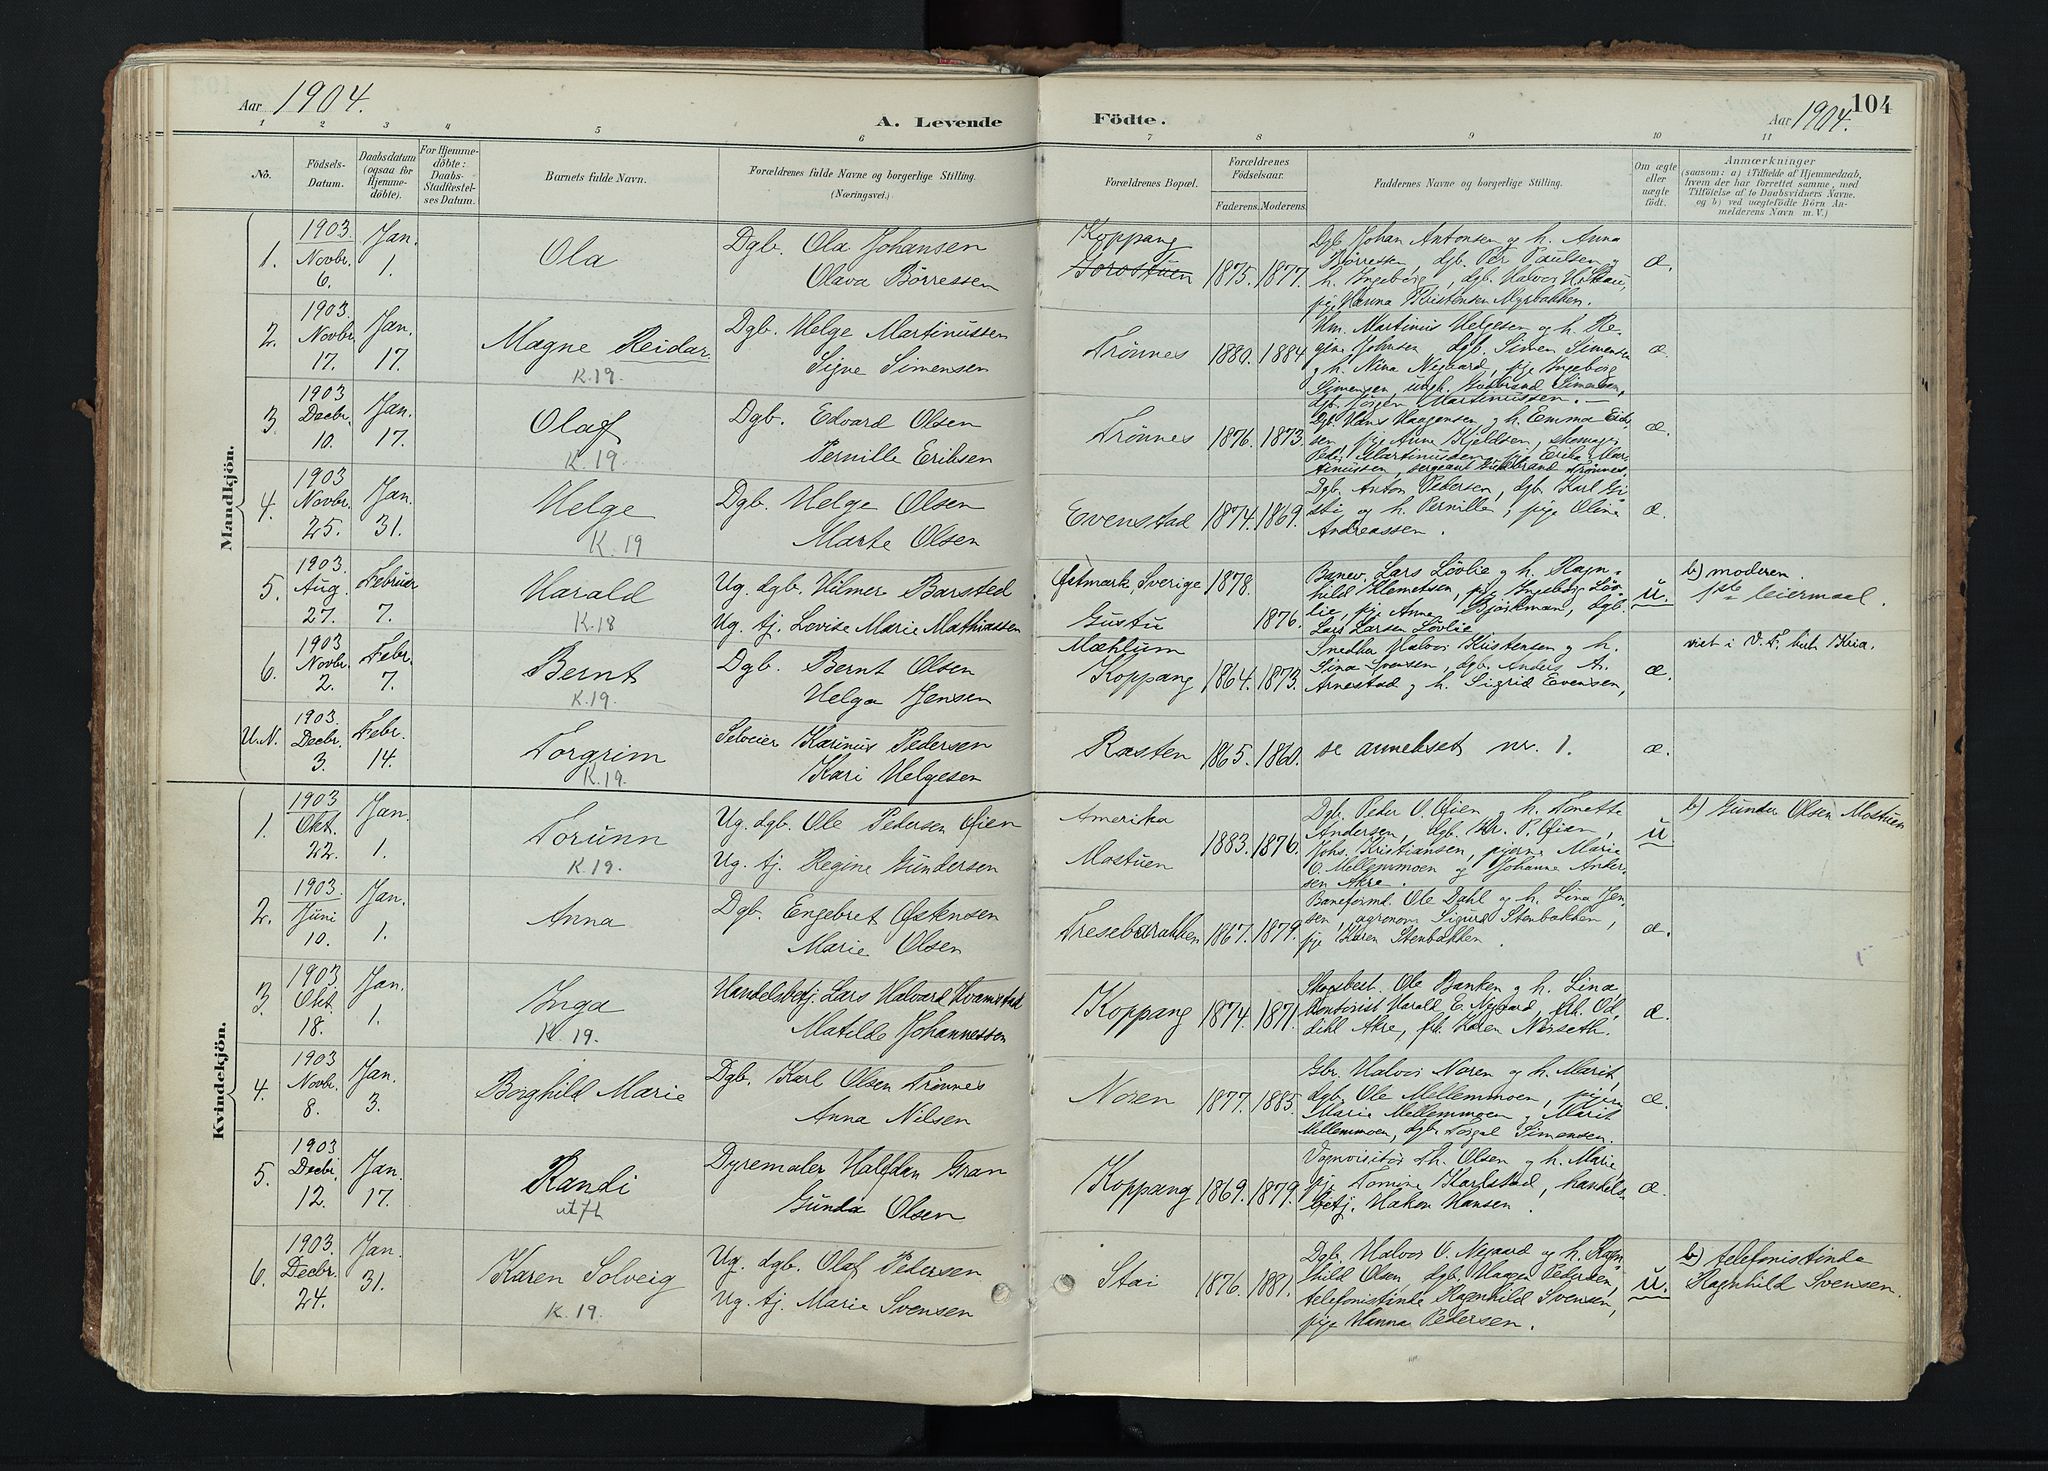 Aar 1904. A. Levende Födte. Aar 1904. 104
1 2 3 4 5 6 7 8 9 10 11
No. Födsels-Datum. Daabsdatum (ogsaa for Hjemmedöbte). For Hjemmedöbte: Daabs-Stadfæstelses Datum. Barnets fulde Navn. Forældrenes fulde Navne og borgerlige Stilling. (Næringsvei.) Forældrenes Bopæl. Forældrenes Födselsaar. Faderens. Moderens. Faddernes Navne og borgerlige Stilling. Om ægte eller uægte födt. Anmærkninger (saasom: a) i Tilfælde af Hjemmedaab, hvem der har forrettet samme, med Tilföielse af to Daabsvidners Navne. og b) ved uægtefödte Börn Anmelderens Navn m. V.)
Mandkjön.
1. 1903 Novbr. 6. Jan. 1. Ola
Dgb. Ola Johansen
Olava Børressen
Koppang
Gorostuen
1875. 1877.
Dgb. Johan Antonsen og h. Anna
Børressen, dgb. Per Paulsen og
h. Ingeborg, dgb. Halvor H.
pige Hanna Kristensen Myrbakken.
æ.
2. 1903. Novbr. 17. Jan. 17. Magne Reidar.
K.19.
Dgb. Helge Martinussen
Signe Simensen
Trønnes 1880. 1884
Hm. Martinus Helgesen og h. Re-
gine Johnsen, dgb. Simen Simensen
og h. Nina Negaard, pige Ingeborg
Simensen, ungk. Gudbrand Simensen,
dgb. Jørgen Martinussen.
æ.
3. 1903 Decbr. 10. Jan. 17. Olaf
K.19.
Dgb. Edvard Olsen
Pernille Eriksen
Trønnes 1876. 1873.
Dgb. Hans Haagensen og h. Emma Erik-
sen, pige Anne Kjeldsen, skomag.
Peder Martinussen, pige Erika Mar-
tinussen, sergeant Gudbrand Trønnes.
æ.
4. 1903 Novbr. 25. Jan. 31. Helge
K.19
Dgb. Helge Olsen
Marte Olsen
Evenstad 1874. 1869.
Dgb. Anton Pedersen, dgb. Karl Gi-
sti og h. Pernille, pige Oline
Andreassen.
æ.
5. 1903. Aug. 27. Februar 7. Harald
K.18
Ug. dgb. Hilmer Barsted
Ug. tj. Lovise Marie Mathiassen
Østmark, Sverige 1878.
Gustu 1876.
Banev. Lars Løvlie og h. Ragn-
hild Klemetsen, pige Ingeborg Løv-
lie, pige Anna Bjørkman, dgb.
Lars Larsen Løvlie
u.
b) moderen.
1ste leiermaal.
6. 1903 Novbr. 2. Febr. 7. Bernt
K.19.
Dgb. Bernt Olsen
Helga Jensen
Mæhlum
Koppang 1864. 1873.
Snedker Halvor Kristensen og h.
Sina Svensen, dgb. Anders A.
Arnestad og h. Sigrid Evensen,
æ.
viet i V. F. Kria.
U.N. 1903. Decbr. 3. Febr. 14. Torgrim
K.19.
Selveier Karinus Pedersen
Kari Helgesen
Rasten 1865. 1860.
se annekset nr. 1.
æ.
Kvindekjön.
1. 1903 Okt. 22. Jan. 1. Torunn
K.19.
Ug. dgb. Ole Pedersen Øien
Ug. tj. Regine Gundersen
Amerika
Mostuen
1883. 1876.
Dgb. Peder O. Øien og h. Tonette
Andersen, dgb. Kr. P. Øien,
Johs. Kristiansen, pigerne Marie
O. Mellemmoen og Johanne Ander-
sen Akre.
u
b) Gunder Olsen Mostuen
2. 1903. Juni 10. Jan. 1. Anna
Dgb. Engebret Østensen
Marie Olsen
Tresebarakken 1867. 1879.
Baneformd. Ole Dahl og h. Lina Jen-
sen, agronom Sigurd Stenbakken,
pige Karen Stenbakken.
æ.
3. 1903. Okt. 18. Jan. 1. Inga
K.19.
Handelsbetj. Lars Halvard Kvamstad
Matilde Johannessen
Koppang 1874. 1871.
Skogsbest. Ole Banken og h. Lina,
Kontorist Harald E. Nygaard, frk. Od-
dihl Akre, frk. Karen Nerseth.
æ.
4. 1903 Novbr. 8. Jan. 3. Borghild Marie
Dgb. Karl Olsen Trønnes
Anna Nilsen
Noren 1877. 1885.
Gbr. Halvor Noren og h. Marit,
dgb. Ole Mellemmoen, pigerne
Marie Mellemmoen og Marit
Mellemmoen, dgb. Torgal Simensen.
æ.
5. 1903 Decbr. 12. Jan. 17. Randi
utfl
Dyremaler Halfdan Gran
Gunda Olsen
Koppang 1869. 1879.
Vognvisitør Th. Olsen og h. Marie,
pige Tomine Karlstad, handels-
betj. Hakon Hansen.
æ.
6. 1903. Decbr. 24. Jan. 31. Karen Solveig
K.19.
Ug. dgb. Olaf Pedersen
Ug. tj. Marie Svensen
Stai 1876. 1881.
Dgb. Halvor O. Negaard og h. Ragn-
hild Olsen, dgb. Haagen Pedersen,
telefonistinde Ragnhild Svensen,
pige Hanna Pedersen.
u.
b) telefonistinde
Ragnhild Svensen.